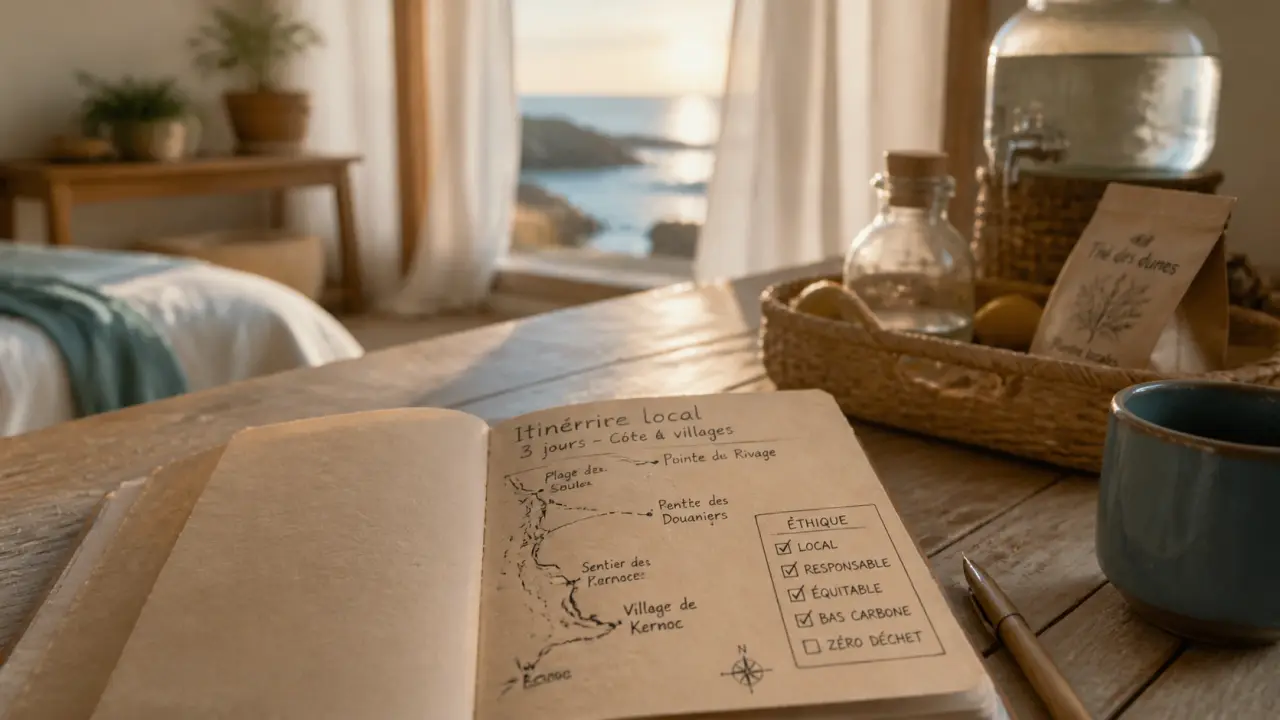 Itinérrire local
3 jours – Côte & villages
Plage des
Pointe du Rivage
Rentte des
Douaniers
Sentier des
Village de
Kernoc
N
ÉTHIQUE
☑ LOCAL
☑ RESPONSABLE
☑ ÉQUITABLE
☑ BAS CARBONE
☐ ZÉRO DÉCHET
Thé des dunes